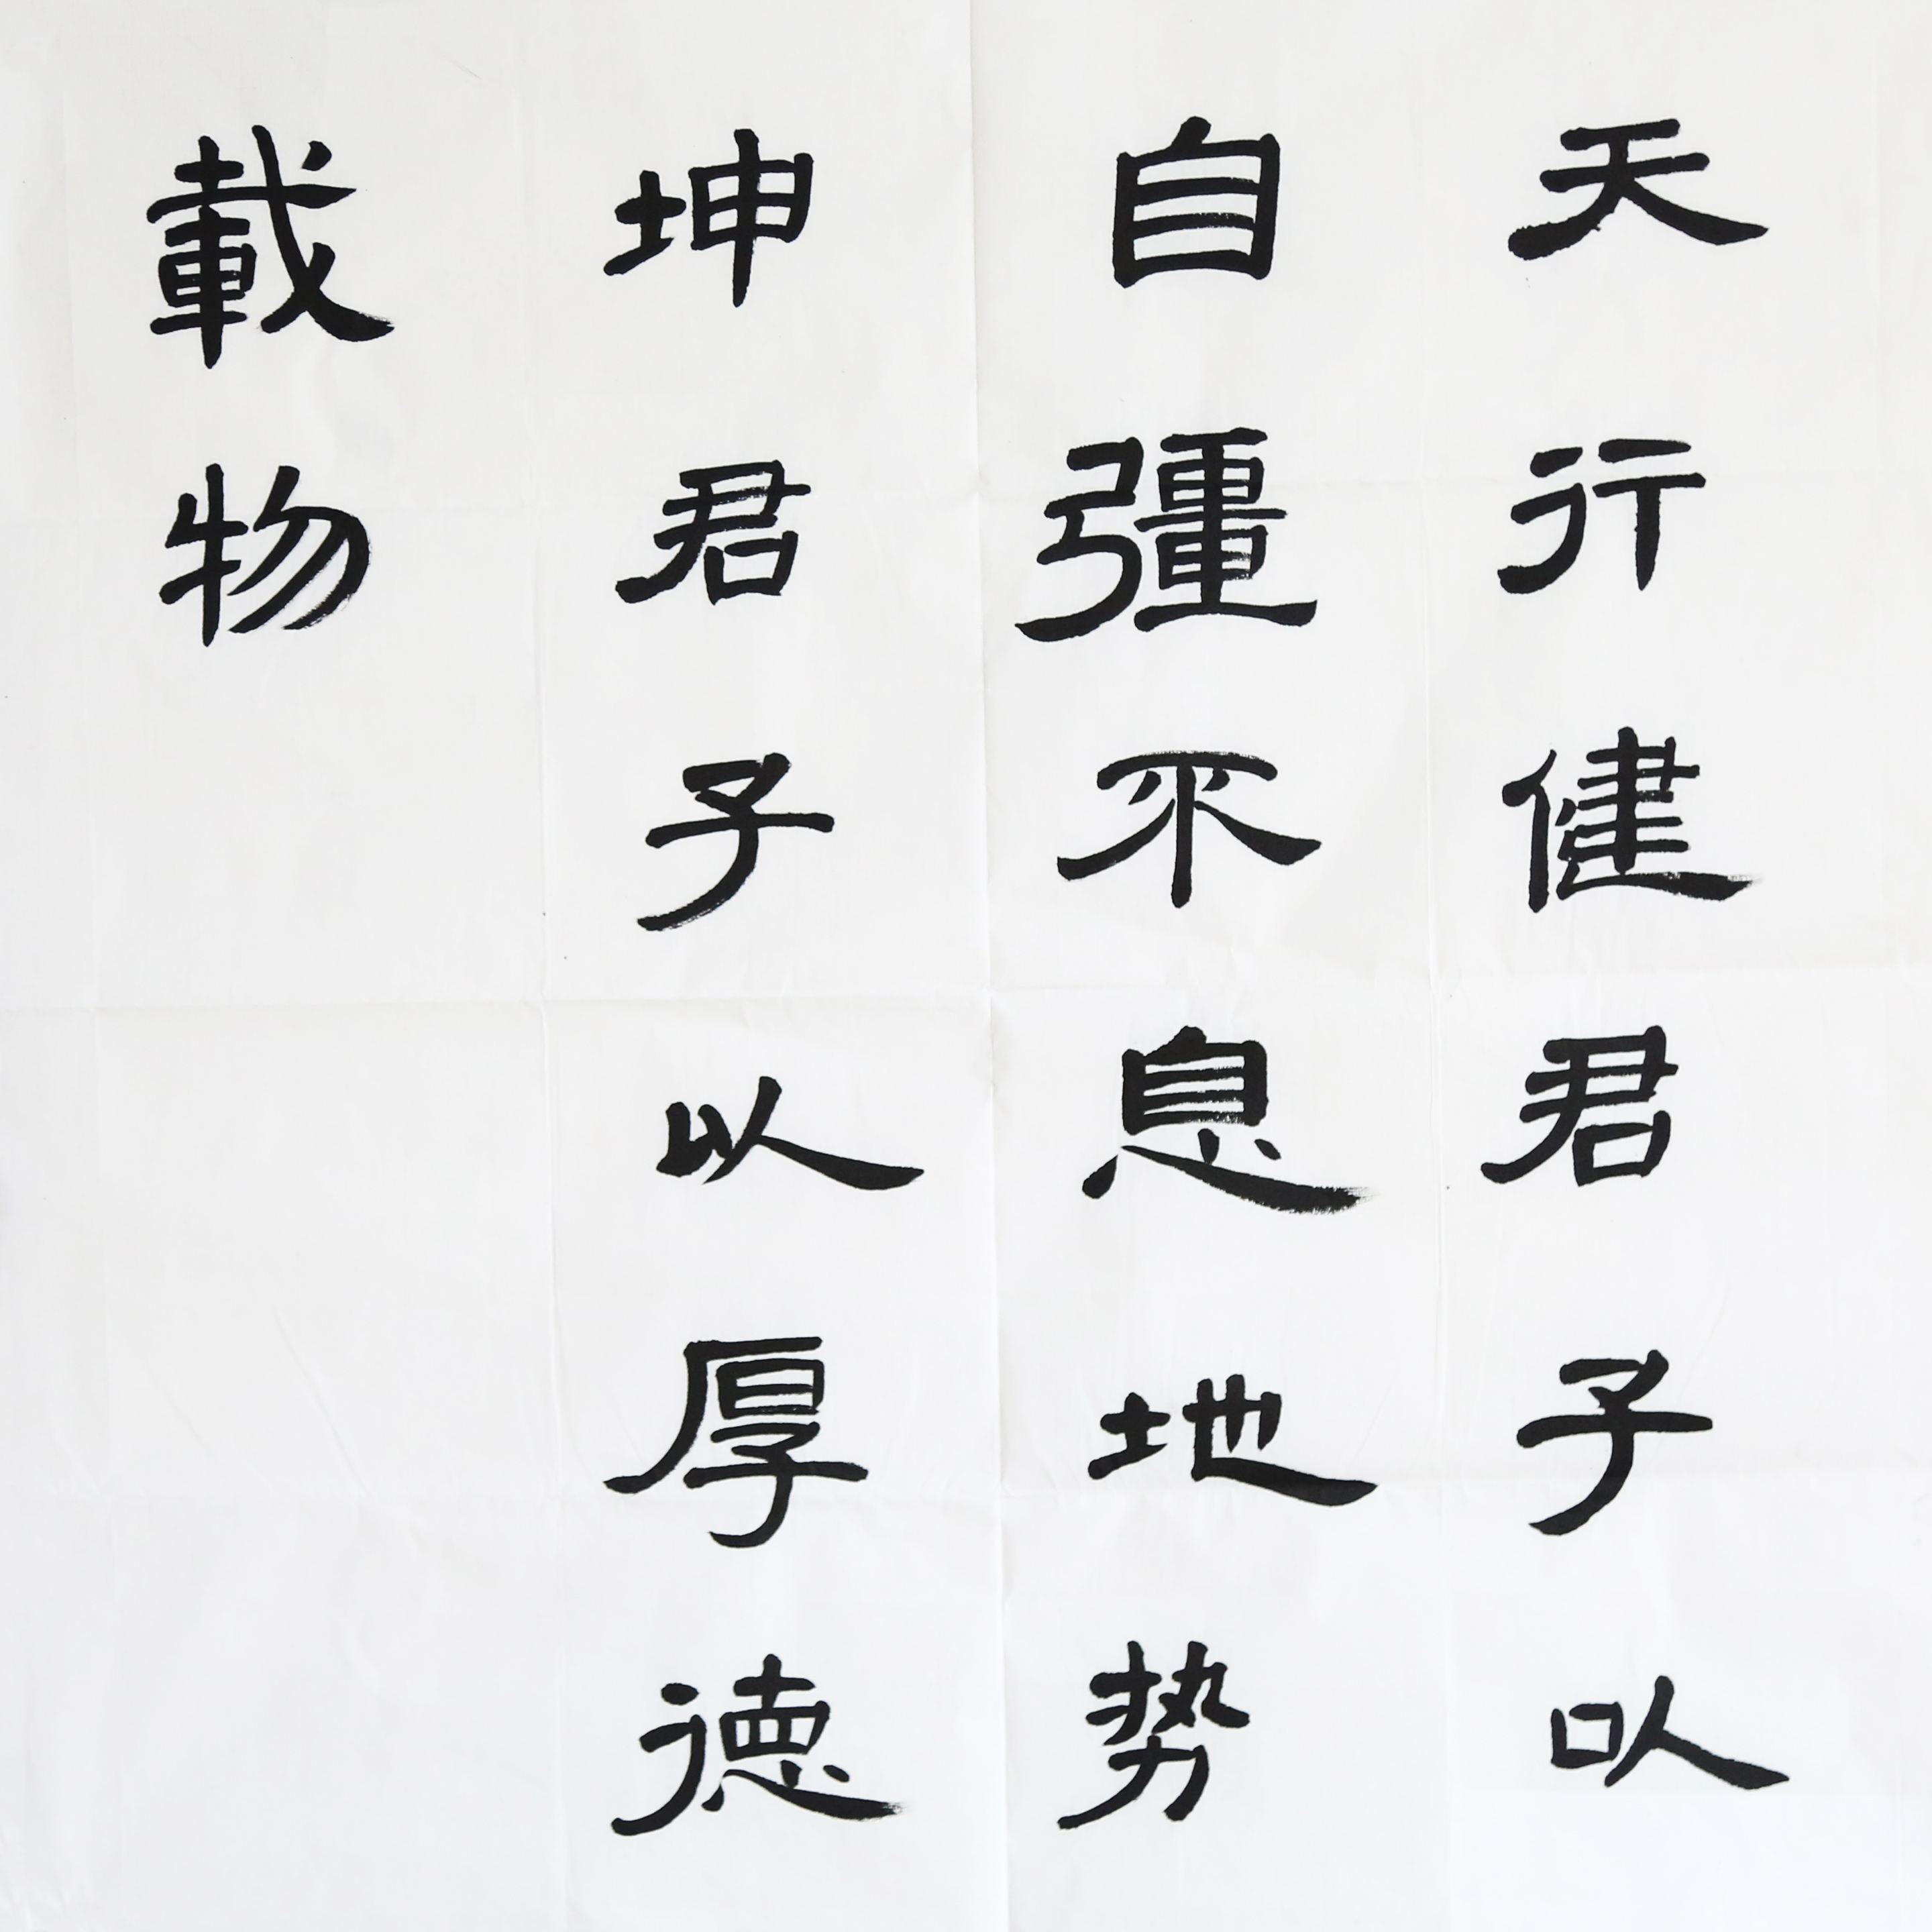 天行健君子以
自彊不息地势
坤君子以厚徳
載物